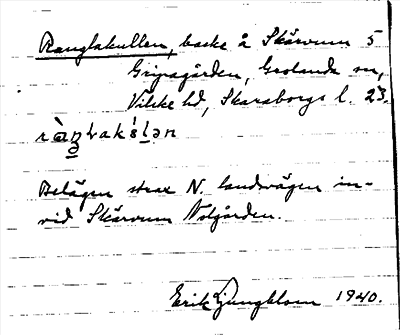 Ranglakullen, backe å Skärvum 5
Gripagården, Grolanda sn,
Vilske hd, Skaraborgs l. 23.
Belägen strax N. landsvägen in-
vid Skärvum Nolgården.
Erik Ljungblom 1940.